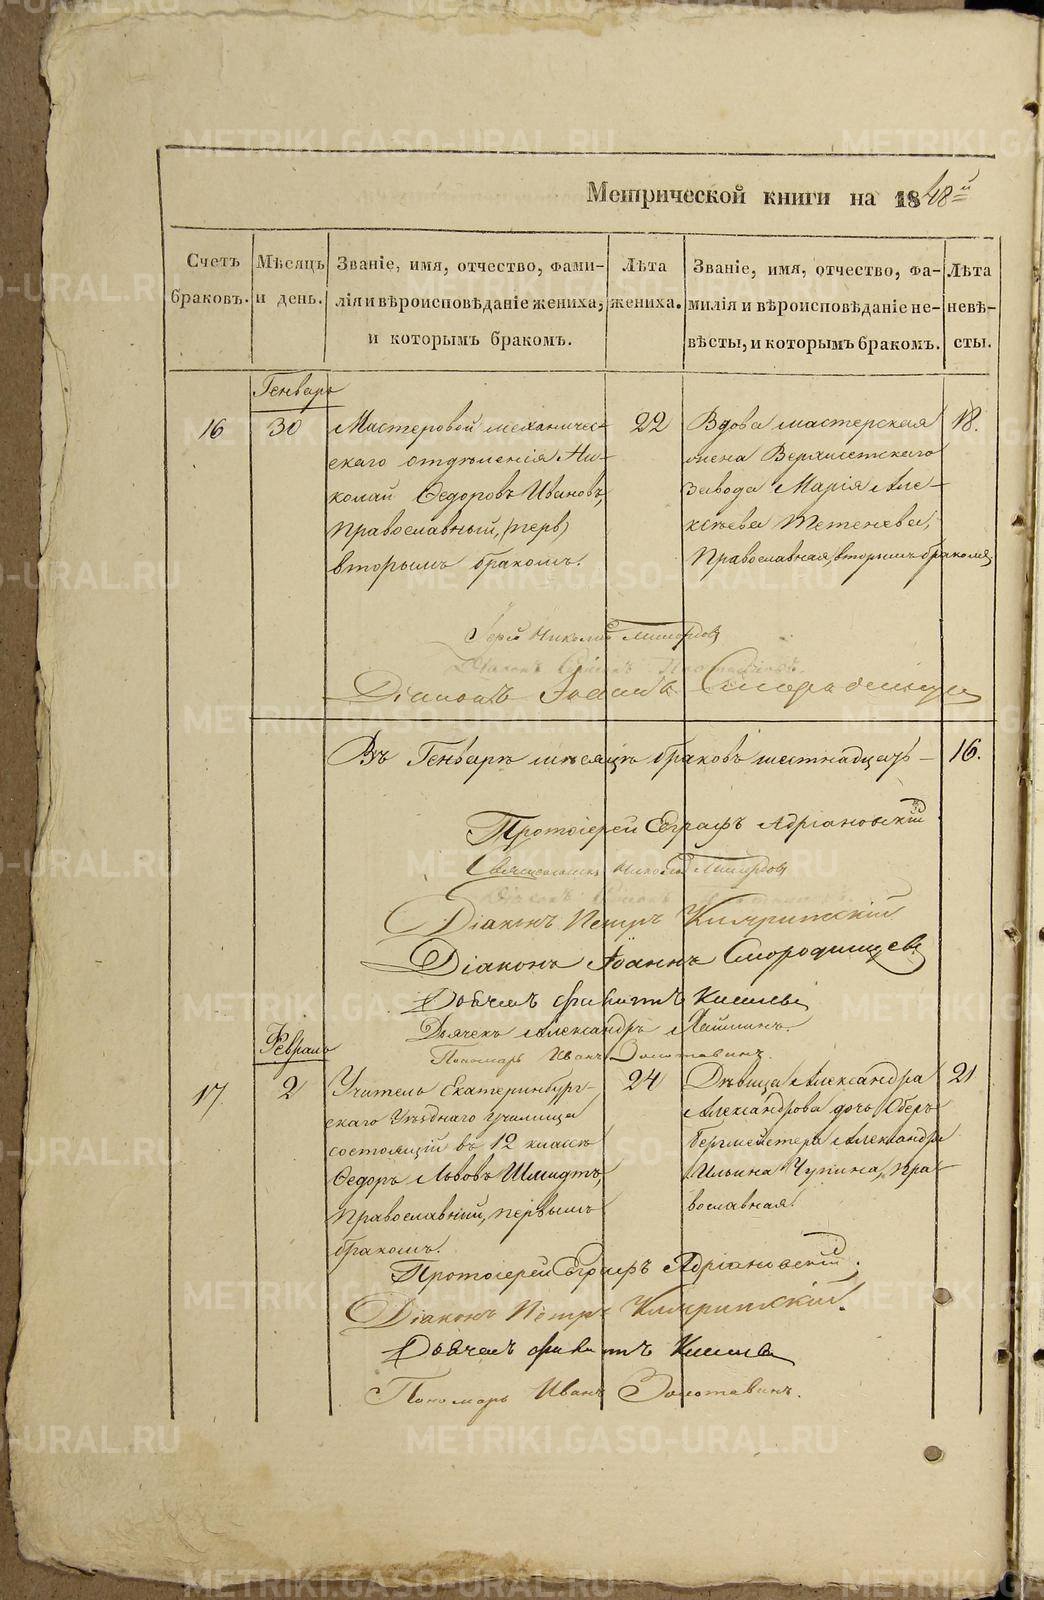 Метрической книги на 1848й
Счетъ браковъ.
Мѣсяцъ и день.
Званіе, имя, отчество, фами-
лія и вѣроисповѣданіе жениха,
и которымъ бракомъ.
Лѣта жениха.
Званіе, имя, отчество, фа-
милія и вѣроисповѣданіе не-
вѣсты, и которымъ бракомъ.
Лѣта невѣ-
сты.
Генварь
16
30
Мастеровой механичес-
скаго отдѣленія Ни-
колай Ѳедоровъ Ивановъ,
Православный, (перв)
вторымъ бракомъ.
22
Вдова мастерская
жена Верхисетскаго
Завода Марія Але-
ксѣева Тетенева,
Православная, вторымъ бракомъ
18.
Іерей Николай
Діаконъ Іоаннъ Смородинцевъ
Въ Генварѣ мѣсяцѣ браковъ шестнадцать – 16.
Протоіерей Евграфъ Адріановскій
Священникъ Николай
Діаконъ Петръ
Діаконъ Іоаннъ Смородинцевъ
Дьячекъ Александръ
Пономарь Иванъ Золотавинъ.
Февраль
17.
2
Учитель Екатеринбург-
скаго Уѣзднаго Училища
состоящій въ 12 классѣ
Ѳедоръ Львовъ Шмидтъ,
Православный, первымъ
бракомъ.
24
Дѣвица Александра
Александрова дочь Обер-
бергмейстера Александра
Ильина Чупина, Пра-
вославная.
21
Протоіерей Евграфъ Адріановскій.
Діаконъ Петръ
Пономарь Иванъ Золотавинъ.
METRIKI.GASO-URAL.RU